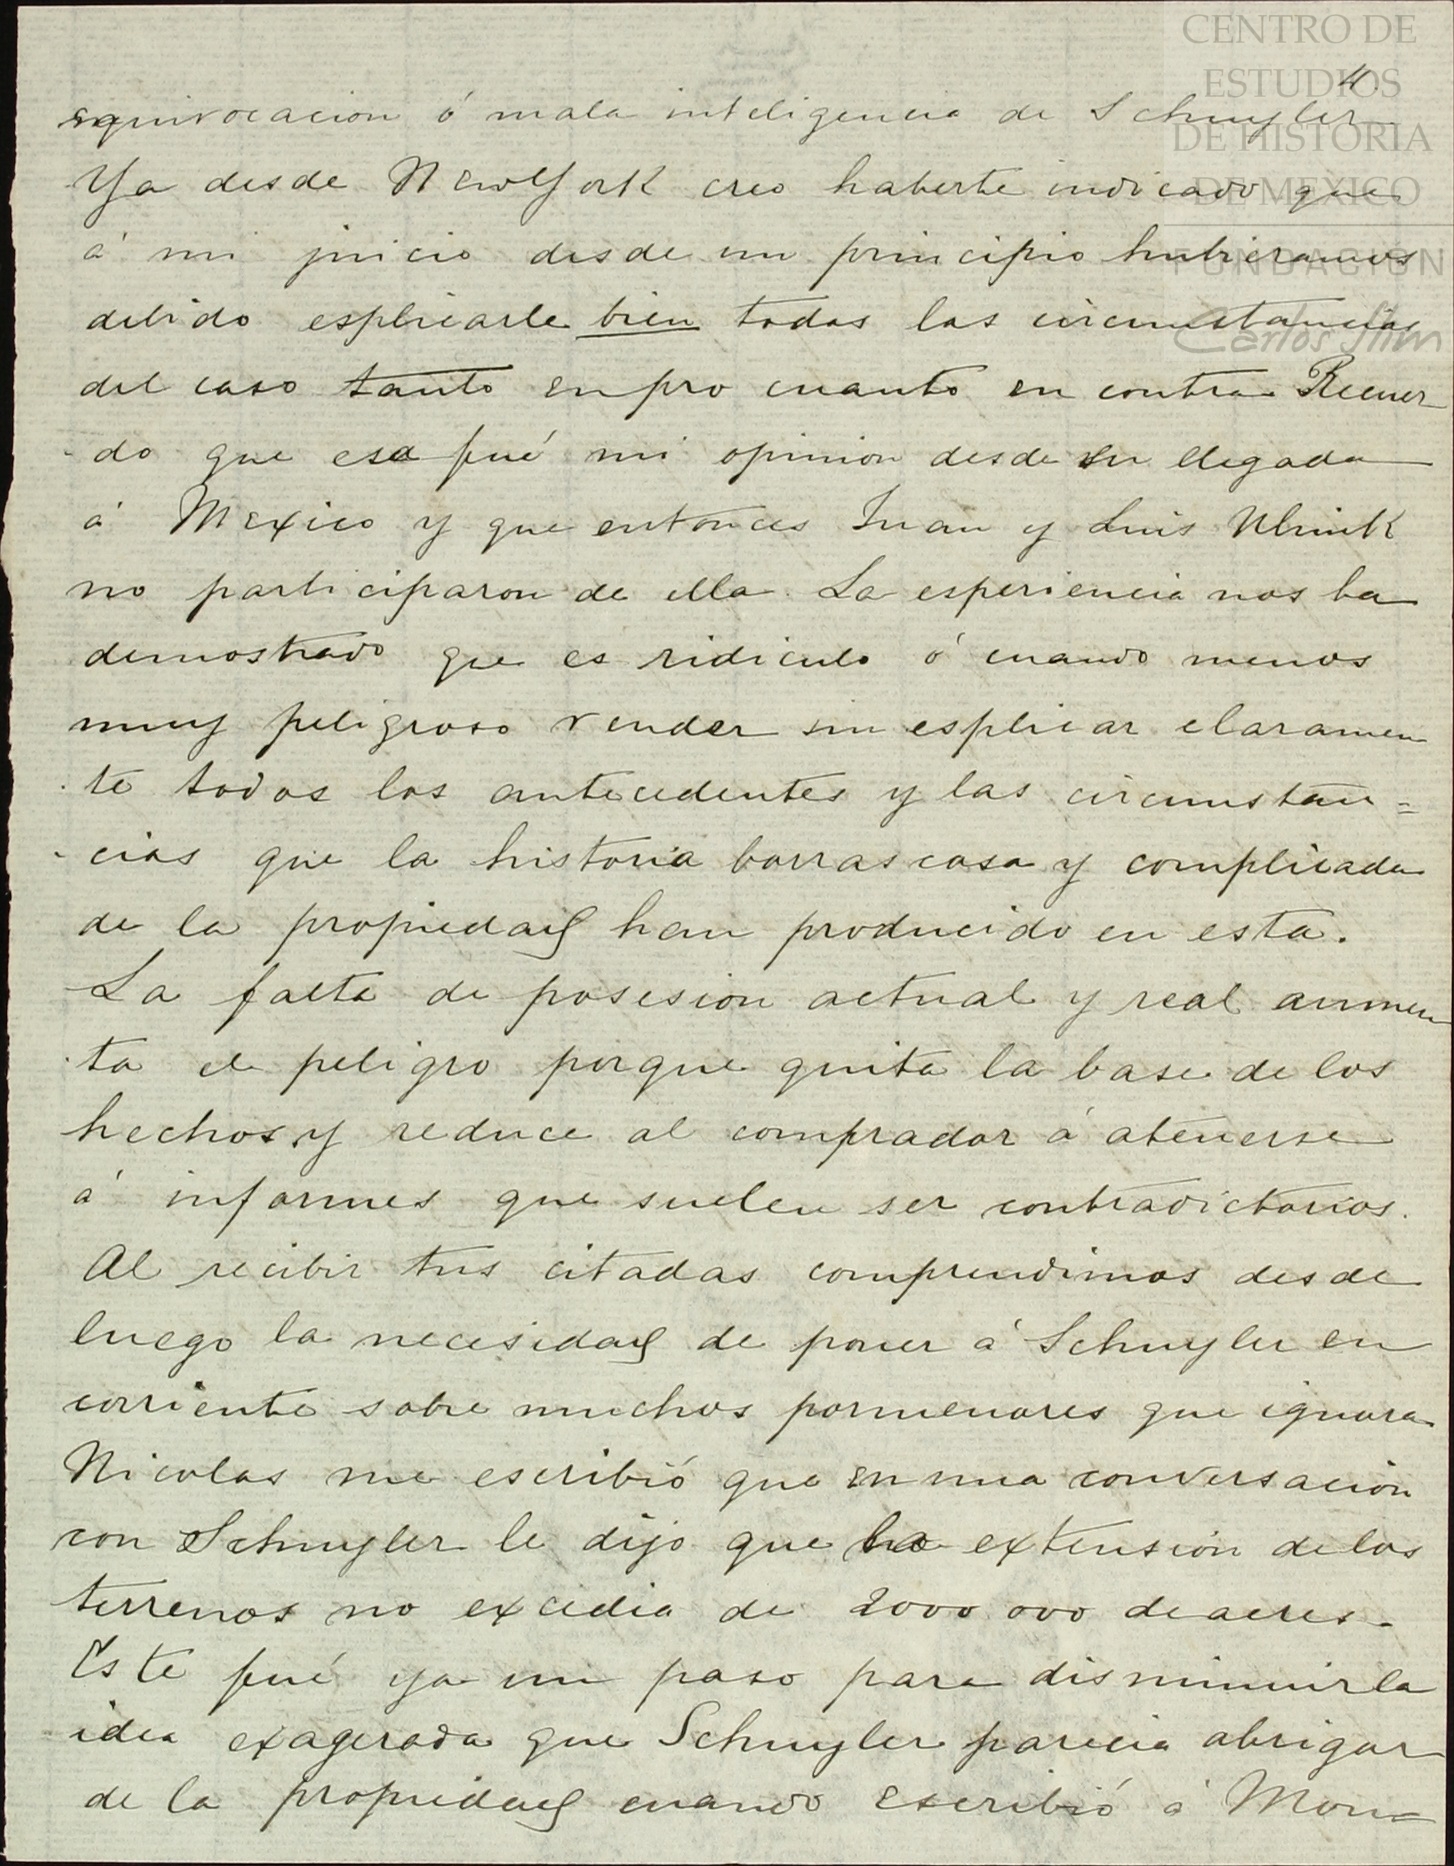 CENTRO DE
ESTUDIOS
DE HISTORIA
DE MEXICO
FUNDACION
Carlos Slim
4
equivocacion ó mala inteligencia de Schuyler
Ya desde New York creo haberte indicado que
á mi juicio desde un principio hubieramos
debido esplicarle bien todas las circumstancias
del caso tanto en pro cuanto en contra. Recuer
do que esa fué mi opinion desde su llegada
á Mexico y que entonces Juan y Luis
no participaron de ella. La esperiencia nos ha
demostrado que es ridiculo ó cuando menos
muy peligroso vender sin esplicar claramen
te todos los antecedentes y las circumstan=
cias que la historia borrascosa y complicada
de la propiedad han producido en esta.
La falta de posesion actual y real aumen
ta el peligro porque quita la base de los
hechos y reduce al comprador á atenerse
á informes que suelen ser contradictorios.
Al recibir tus citadas comprendimos desde
luego la necesidad de poner á Schuyler en
corriente sobre muchos pormenores que ignora
Nicolas me escribió que en una conversacion
con Schuyler le dijo que la extension de los
terrenos no excedia de 2000 000 de acres.
Este fué ya un paso para disminuir la
idea exagerada que Schuyler parecia abrigar
de la propiedad cuando escribió á Mon